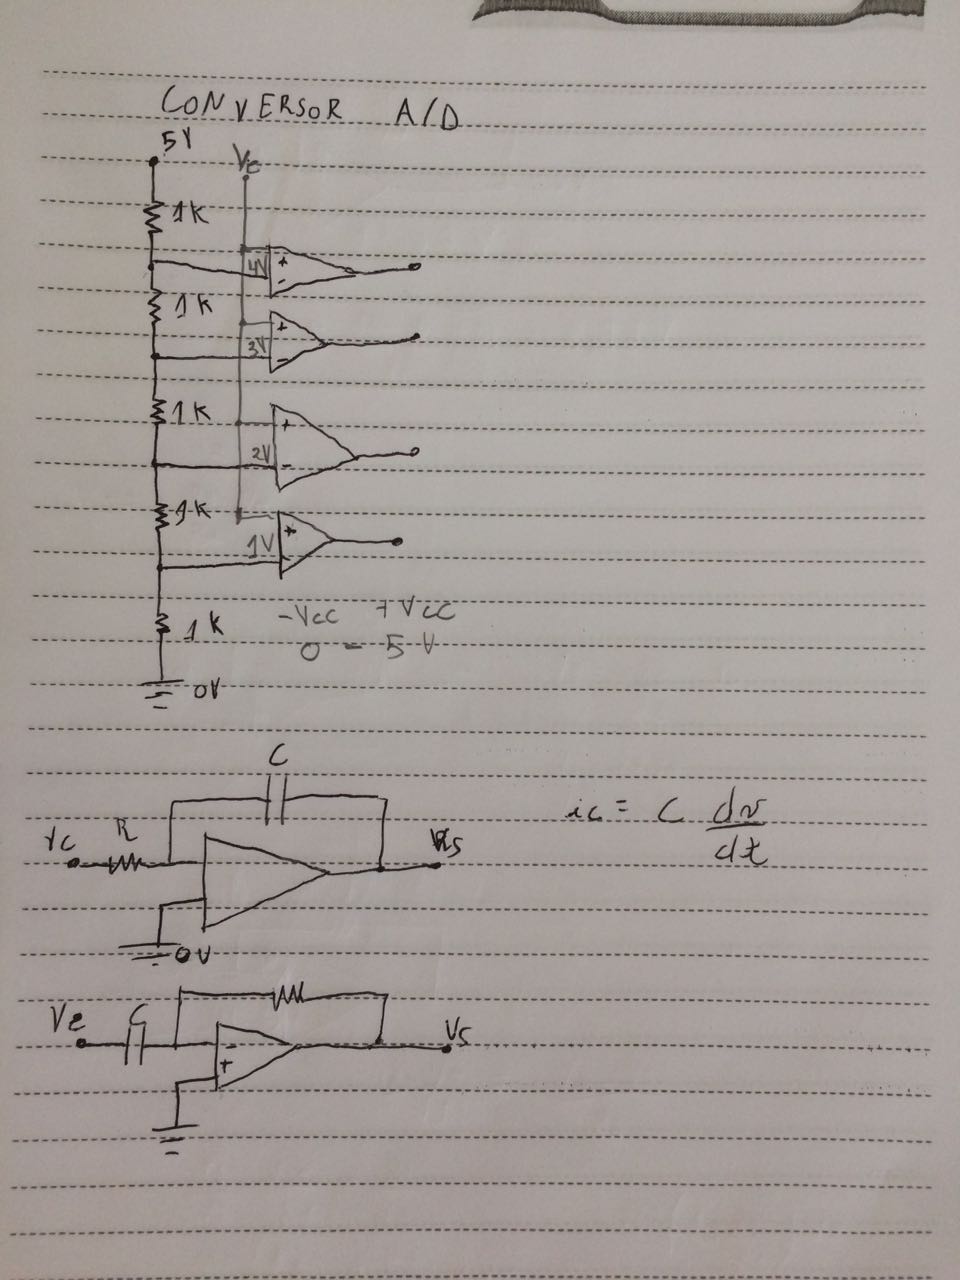 CONVERSOR A/D
5V
Ve
1K
4V + -
1K
3V + -
1K
2V + -
1K
1V + -
1K
-Vcc +Vcc
0 - 5 V
0V
C
R
ic = C dv/dt
Vs
0V
Ve
C
Vs
- +